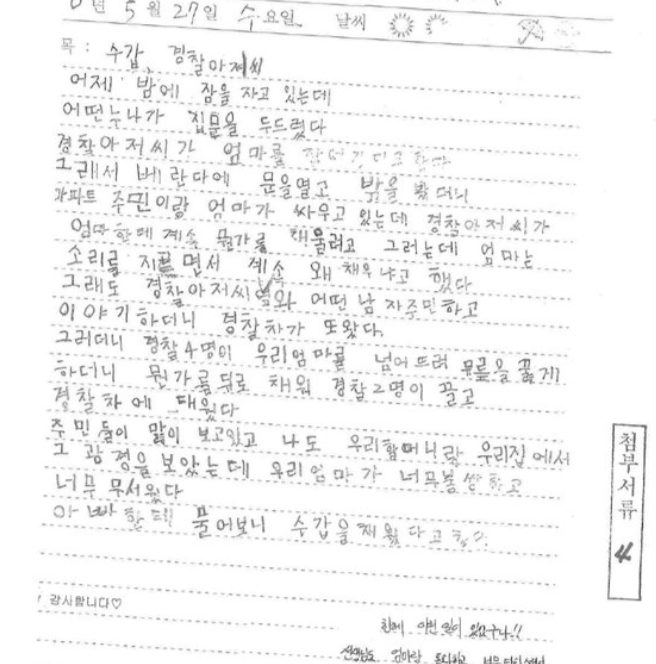 년 5월 27일 수요일 날씨
목: 수갑, 경찰아저씨
어제 밤에 잠을 자고 있는데
어떤누나가 집문을 두드렸다
경찰아저씨가 엄마를
그래서 베란다에 문을열고 밖을 봤더니
아파트 주민이랑 엄마가 싸우고 있는데 경찰아저씨가
엄마한테 계속 뭔가를 채울려고 그러는데 엄마는
소리를 지르면서 계속 왜 채우냐고 했다
그래도 경찰아저씨 와 어떤 남자주민하고
이야기하더니 경찰차가 또왔다.
그러더니 경찰4명이 우리엄마를 넘어뜨려 무릎을 꿇게
하더니 뭔가를뒤로 채워 경찰2명이 끌고
경찰차에 태웠다
주민들이 많이 보고있고 나도 우리할머니랑 우리집에서
그 광경을 보았는데 우리엄마가 너무불쌍하고
너무 무서웠다
아빠한테 물어보니 수갑을채웠다고
감사합니다♡
이런일이 있었구나!!
엄마랑
첨부서류 4